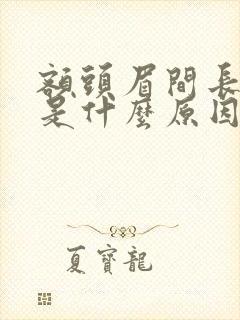 額頭眉間長
是什麼原因
夏寶龍